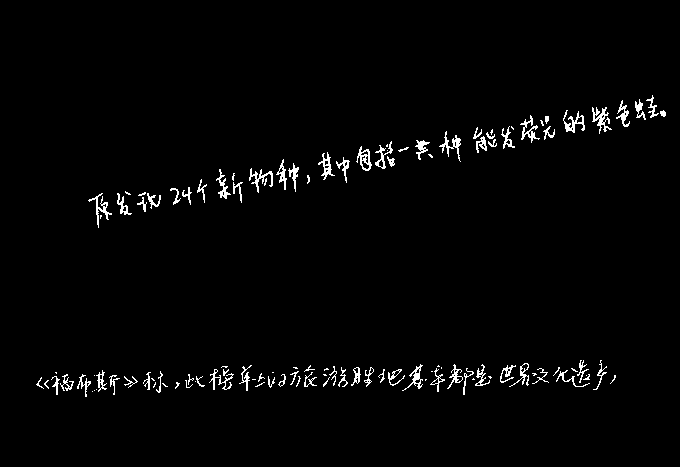 原发现24个新物种，其中包括一共种能发荧光的紫色蛙。
《福布斯》称，此榜单上的旅游胜地基本都是世界文化遗产，